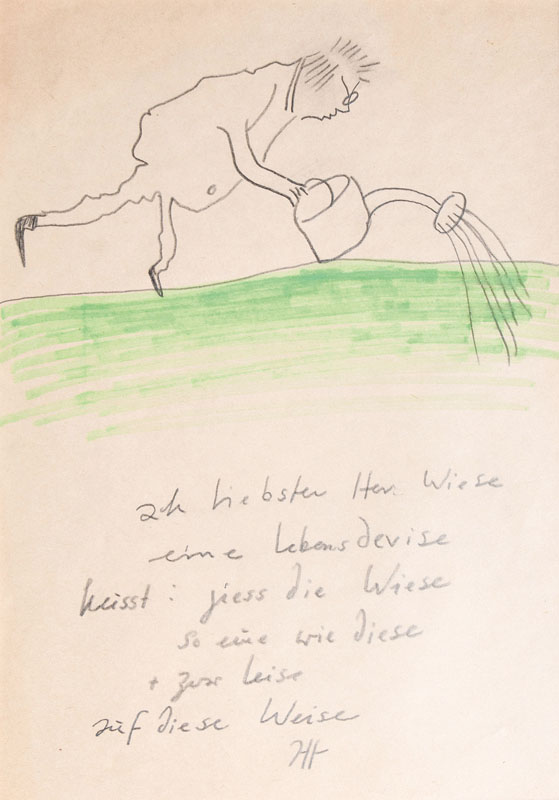 ach liebster Herr Wiese
eine lebensdevise
heisst : giess die Wiese
so eine wie diese
+ zwar leise
auf diese Weise